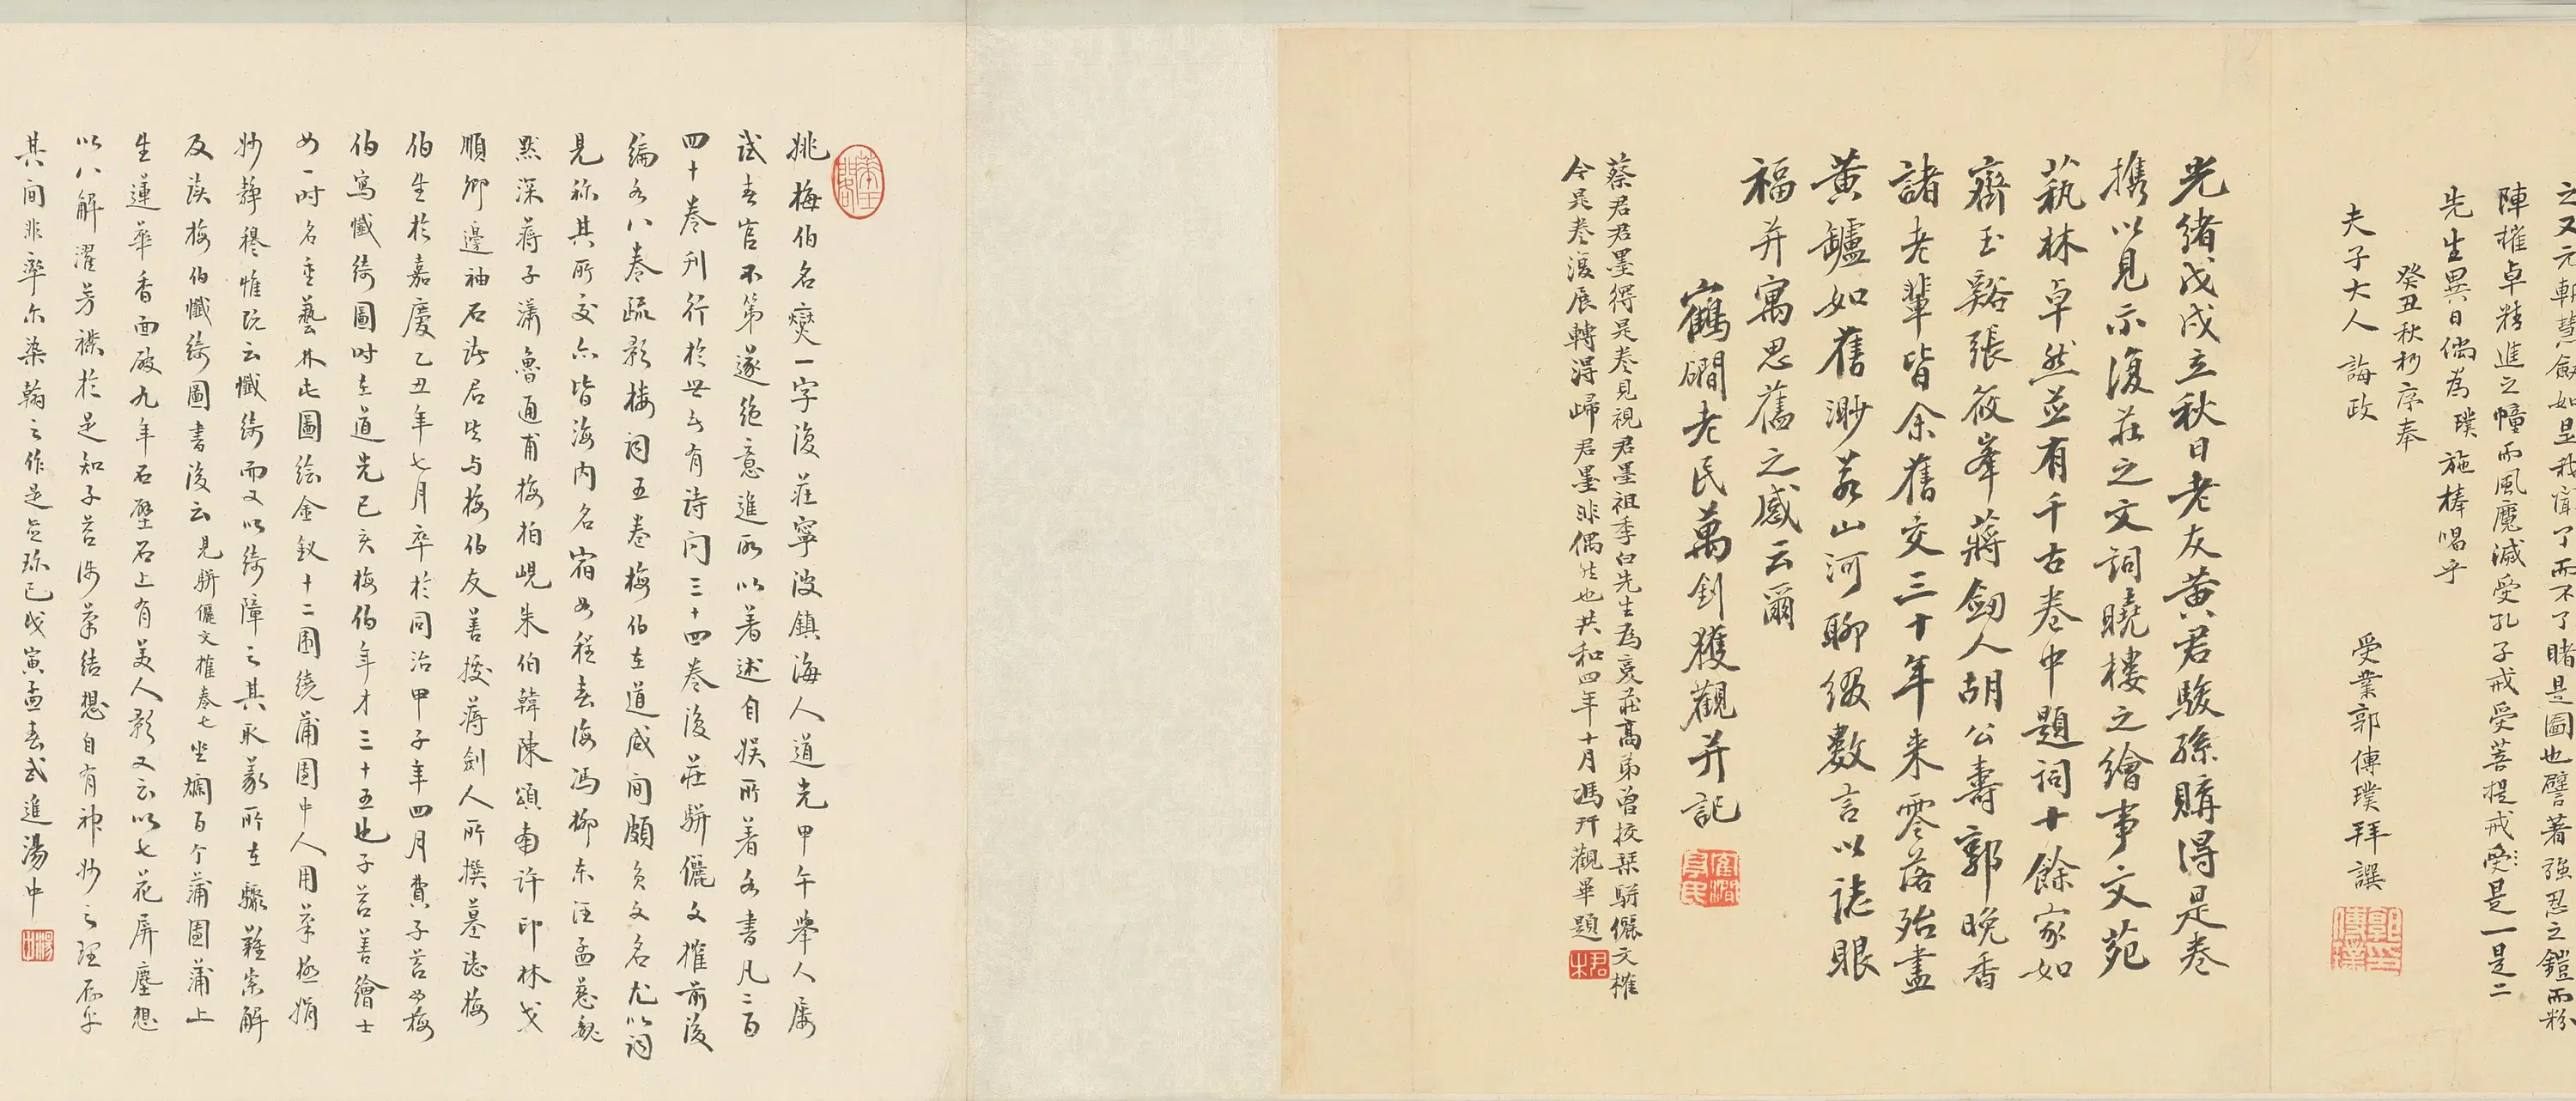 之又元斬慧劍如是我聞了而不了睹是圖也譬著強忍之鎧而粉
陣摧卓精進之幢而風魔滅受孔子戒受菩提戒是一是二
先生異日儻為璞施棒喝乎
癸丑秋杪序奉
夫子大人誨政
受業郭傳璞拜譔
郭印傳璞
光緒戊戌立秋日老友黃君駿孫購得是卷
攜以見示復莊之文詞曉樓之繪事文苑
藝林卓然並有千古卷中題詞十餘家如
齊玉谿張筱峯蔣劒人胡公壽郭晚香
諸老輩皆余舊交三十年來零落殆盡
黃罏如舊渺若山河聊綴數言以誌眼
福并寓思舊之感云爾
鶴磵老民萬釗獲觀并記
鶴磵老民
蔡君君墨得是卷見視君墨祖季白先生為復莊高弟曾挍栞駢儷文榷
今是卷復展轉得歸君墨非偶然也共和四年十月馮幵觀畢題
君木
姚梅伯名燮一字復莊寧波鎮海人道光甲午舉人屢
試春官不第遂絕意進取以著述自娛所著各書凡二百
四十卷刊行於世者有詩問三十四卷復莊駢儷文榷前後
編各八卷疏影樓詞五卷梅伯在道咸間頗負文名尤以詞
見稱其所交亦皆海內名宿如程春海馮柳東汪孟慈魏
默深蔣子瀟魯通甫梅柏峴朱伯韓陳頌南許印林戈
順卿邊袖石諸君皆與梅伯友善據蔣劍人所撰墓誌梅
伯生於嘉慶乙丑年七月卒於同治甲子年四月費子苕為梅
伯寫懺綺圖時在道光己亥梅伯年才三十五也子苕善繪士
女一時名重藝林此圖繪金釵十二圍繞蒲團中人用筆極娟
妙靜穆惟既云懺綺而又以綺障之其取義所在驟難索解
及讀梅伯懺綺圖書後云見駢儷文榷卷七坐爛百个蒲團蒲上
生蓮華香面破九年石壁石上有美人影又云以七花屏塵想
以八解濯芳襟於是知子苕涉筆結想自有神妙之理存乎
其間非率尒染翰之作是足珍已戊寅孟春武進湯中
湯中